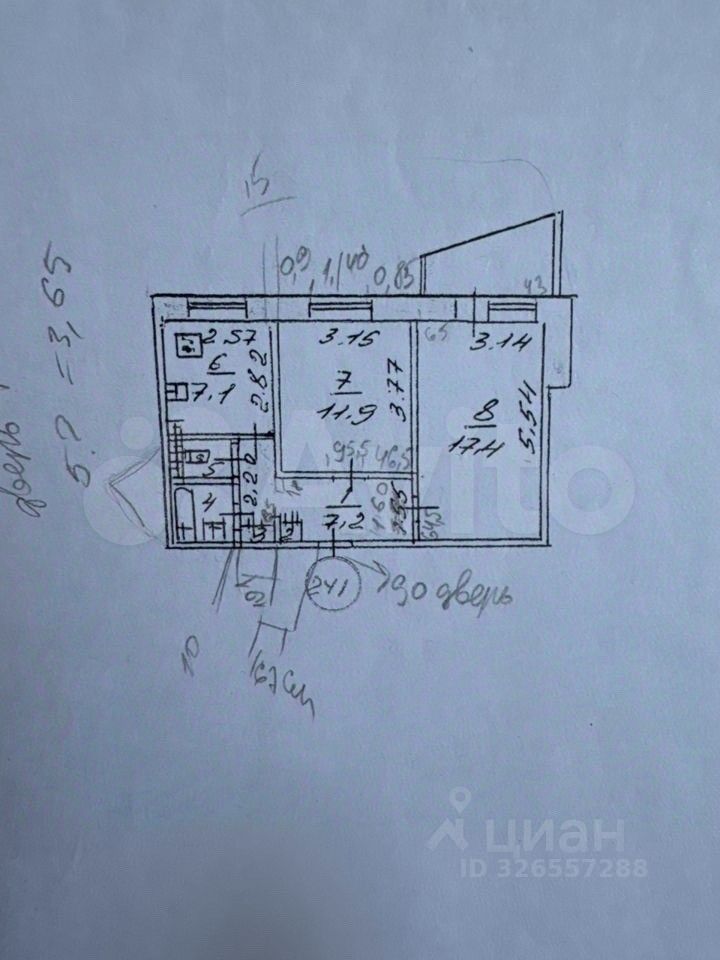 15
0,9 1,40 0,85
43
65
2.57
3.15
3.14
6
7.1
2.82
7
11.9
3.77
8
17.4
5.54
95,5 46,5
5
2.20
4
1
7.2
1.60
1.55
64,5
3
2
241
90 дверь
10
67 см
дверь
5.2 = 3,65
Avito
циан
ID 326557288